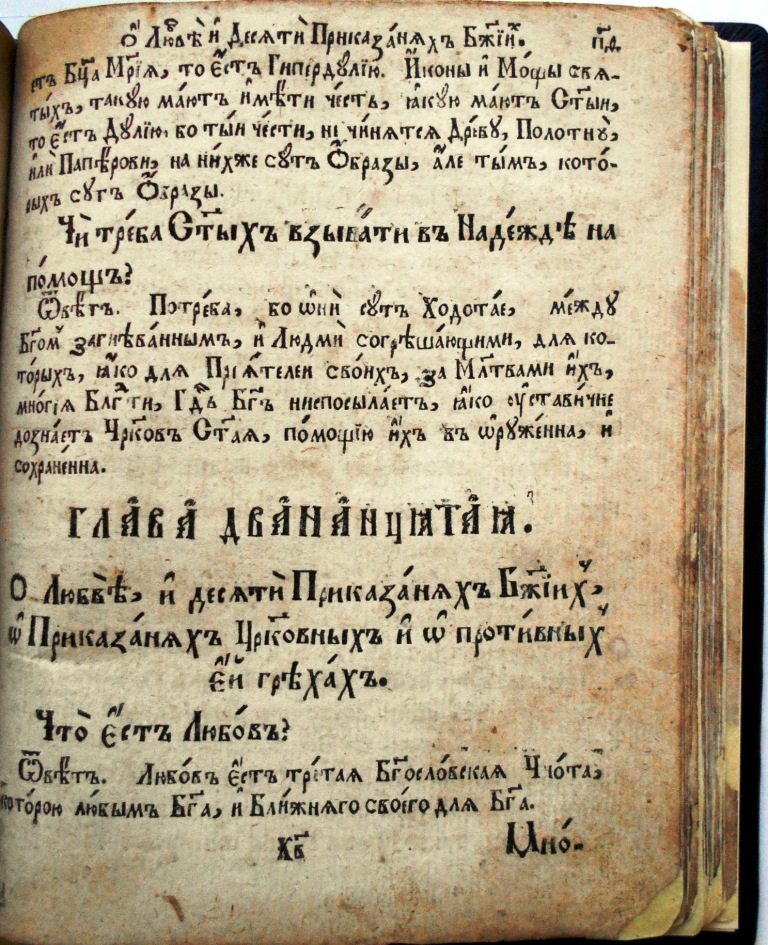 Ѽ Люⷠвѣ и҆ Десѧтѝ Приказа́нѧхъ Бж҃їиⷯ. п҃ѳ.
стъ Бц҃а Мр҃їѧ, то є҆́стъ Гиперду́лїю. И҆́коны и҆ Мо́щы свѧ-
ты́хъ, таку́ю ма́ютъ и҆мѣ́ти че́сть, ꙗ҆ку́ю ма́ютъ Ст҃ыи,
то є҆́стъ Ду́лїю. бо ты́и че́сти, нє чинѧ́тсѧ Дре́ву, Полотну̀,
и҆лѝ Папѣ́рови, на ни́хже су́тъ Ѻ҆́бразы, а҆́ле ты́мъ, кото́-
рыхъ су́тъ Ѻ҆́бразы.
Чѝ тре́ба Ст҃ы́хъ взыва́ти въ Наде́ждѣ на
по́мощъ?
Ѿвѣ́тъ. Потре́ба, бо ѡ҆нѝ су́тъ Ходота́е, ме́жду
Бг҃омⷨ загнѣ́ваннымъ, и҆ Людмѝ согрѣша́ющими, длѧ ко-
то́рыхъ, ꙗ҆́ко длѧ Прїѧ́телеи свои́хъ, за Млт҃вами и҆́хъ,
мно́гїѧ Блгⷣти, Гдⷭ҇ь Бг҃ъ ниспосыла́етъ, ꙗ҆́ко ᲂу҆стави́чне
дозна́етъ Чр҃ковъ Ст҃аѧ, по́мощїю и҆́хъ въ ѡ҆руже́нна, и҆
сохране́нна.
ГЛАВА ДВАНАНЦѦТАꙖ.
О Любвѣ̀, и҆ десѧтѝ Приказа́нѧхъ Бж҃їихⷯ,
ѡ҆ Приказа́нѧхъ Цр҃ко́вныхъ и҆ ѡ҆ проти́вныхⷯ
є҆́й грѣха́хъ.
Что̀ є҆́стъ Любо́въ?
Ѿвѣ́тъ. Любо́въ є҆́стъ тре́таѧ Бг҃осло́вскаѧ Чно́та,
кото́рою лю́бымъ Бг҃а, и҆ Бли́жнѧго своего̀ длѧ Бг҃а.
Хв҃ Мно́-